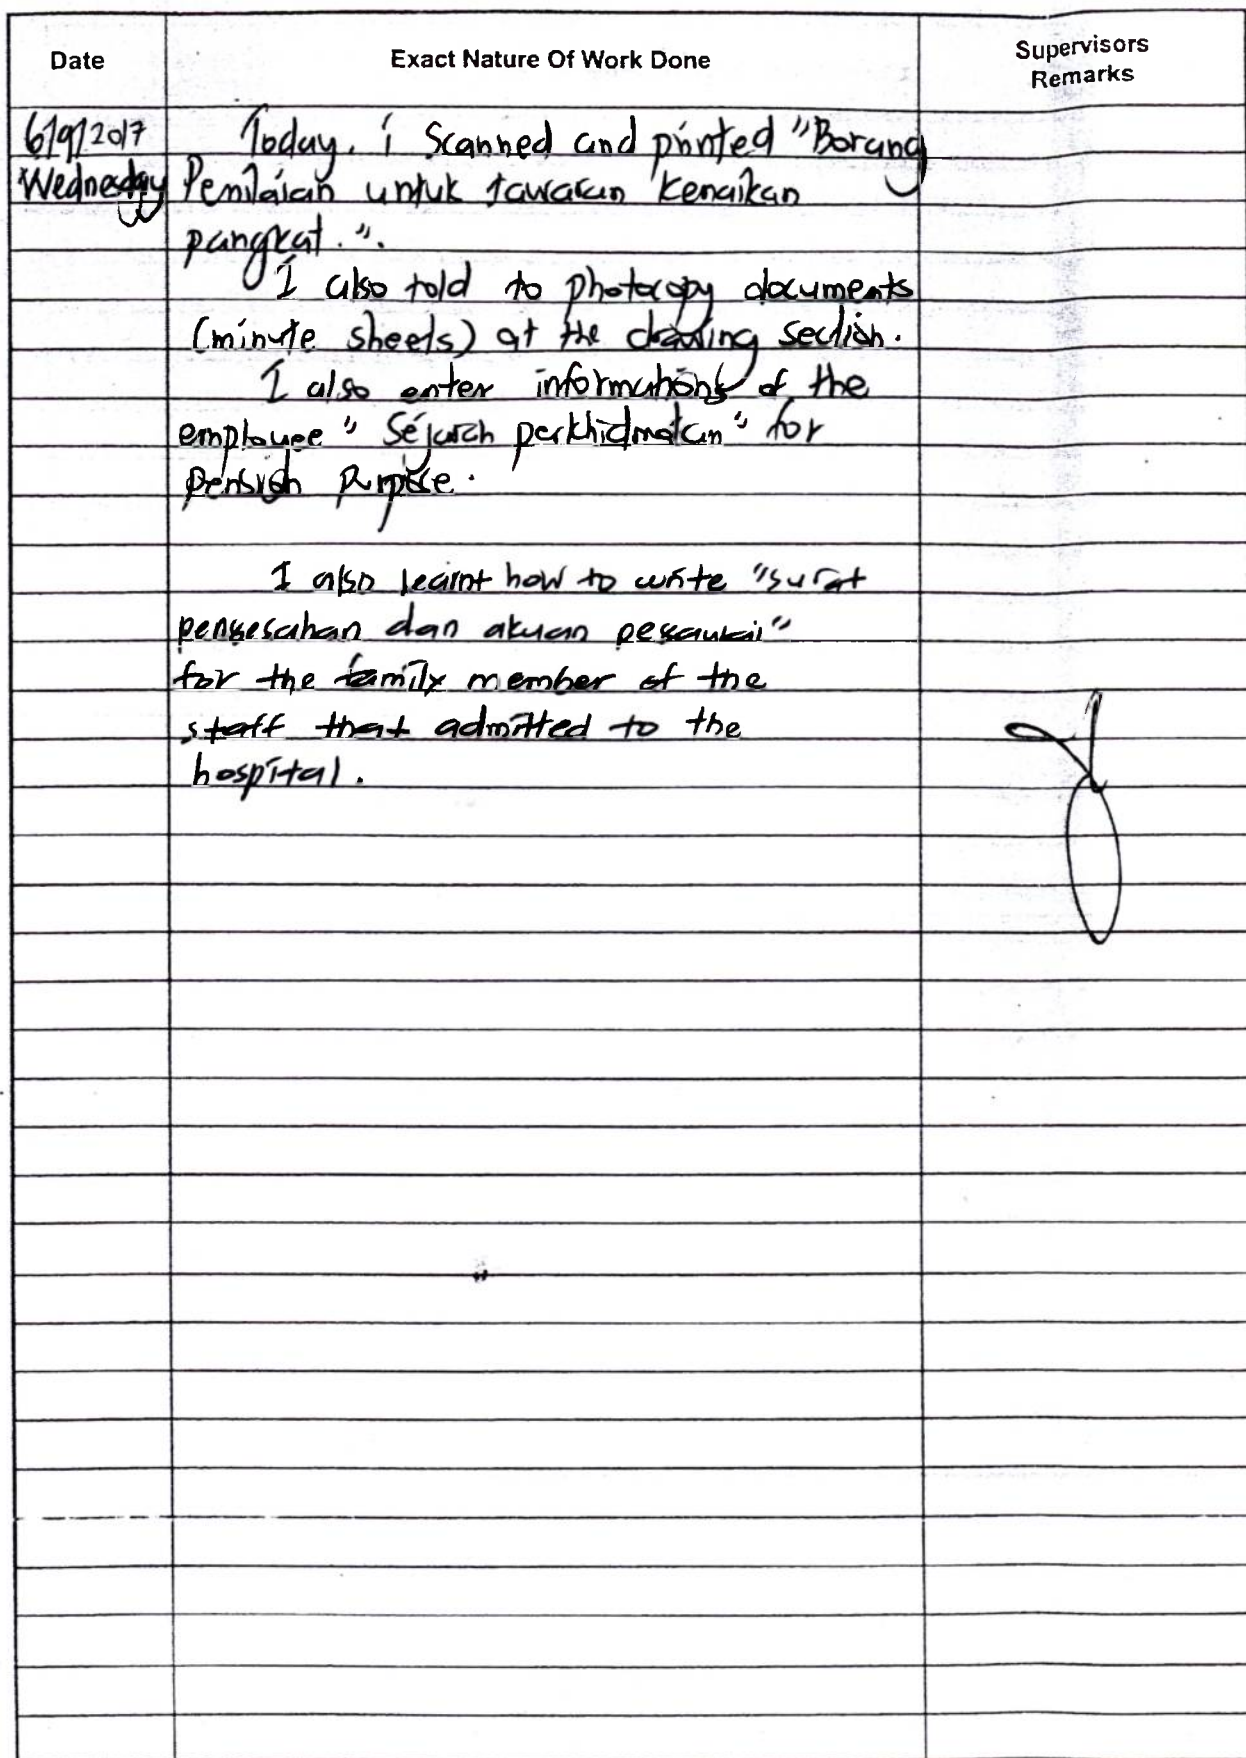 Date
Exact Nature Of Work Done
Supervisors
Remarks
6/9/2017
Wednesday
Today, i scanned and printed "Borang
Penilaian untuk tawaran kenaikan
pangkat.".
I also told to photocopy documents
(minute sheets) at the drawing section.
I also enter informations of the
employee " Sejarah perkhidmatan" for
pension purpose.
I also learnt how to write "surat
pengesahan dan akuan pegawai"
for the family member of the
staff that admitted to the
hospital.